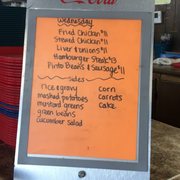 Coca-Cola
Wednesday
Fried Chicken $11
Stewed Chicken $11
Liver & Onions $11
Hamburger Steak $13
Pinto Beans & Sausage $11
Sides
Rice & gravy Corn
mashed potatoes Carrots
mustard greens Cake
green beans
cucumber salad